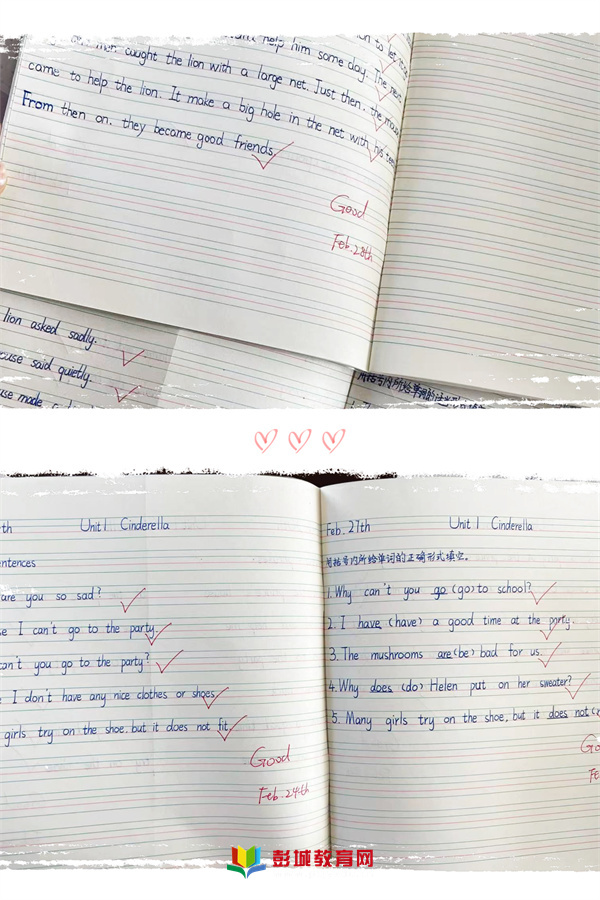 him some day. The
caught the lion with a large net. Just then, the
came to help the lion. It make a big hole in the net with his
From then on, they became good friends.
Good
Feb. 28th
lion asked sadly.
said quietly.
made
Unit 1 Cinderella
are you so sad?
I can't go to the party.
you go to the party?
I don't have any nice clothes or shoes
girls try on the shoe, but it does not fit.
Good
Feb. 24th
Feb. 27th Unit 1 Cinderella
用括号内所给单词的正确形式填空。
1. Why can't you go (go) to school?
2. I have (have) a good time at the party.
3. The mushrooms are (be) bad for us.
4. Why does (do) Helen put on her sweater?
5. Many girls try on the shoe, but it does not
彭城教育网